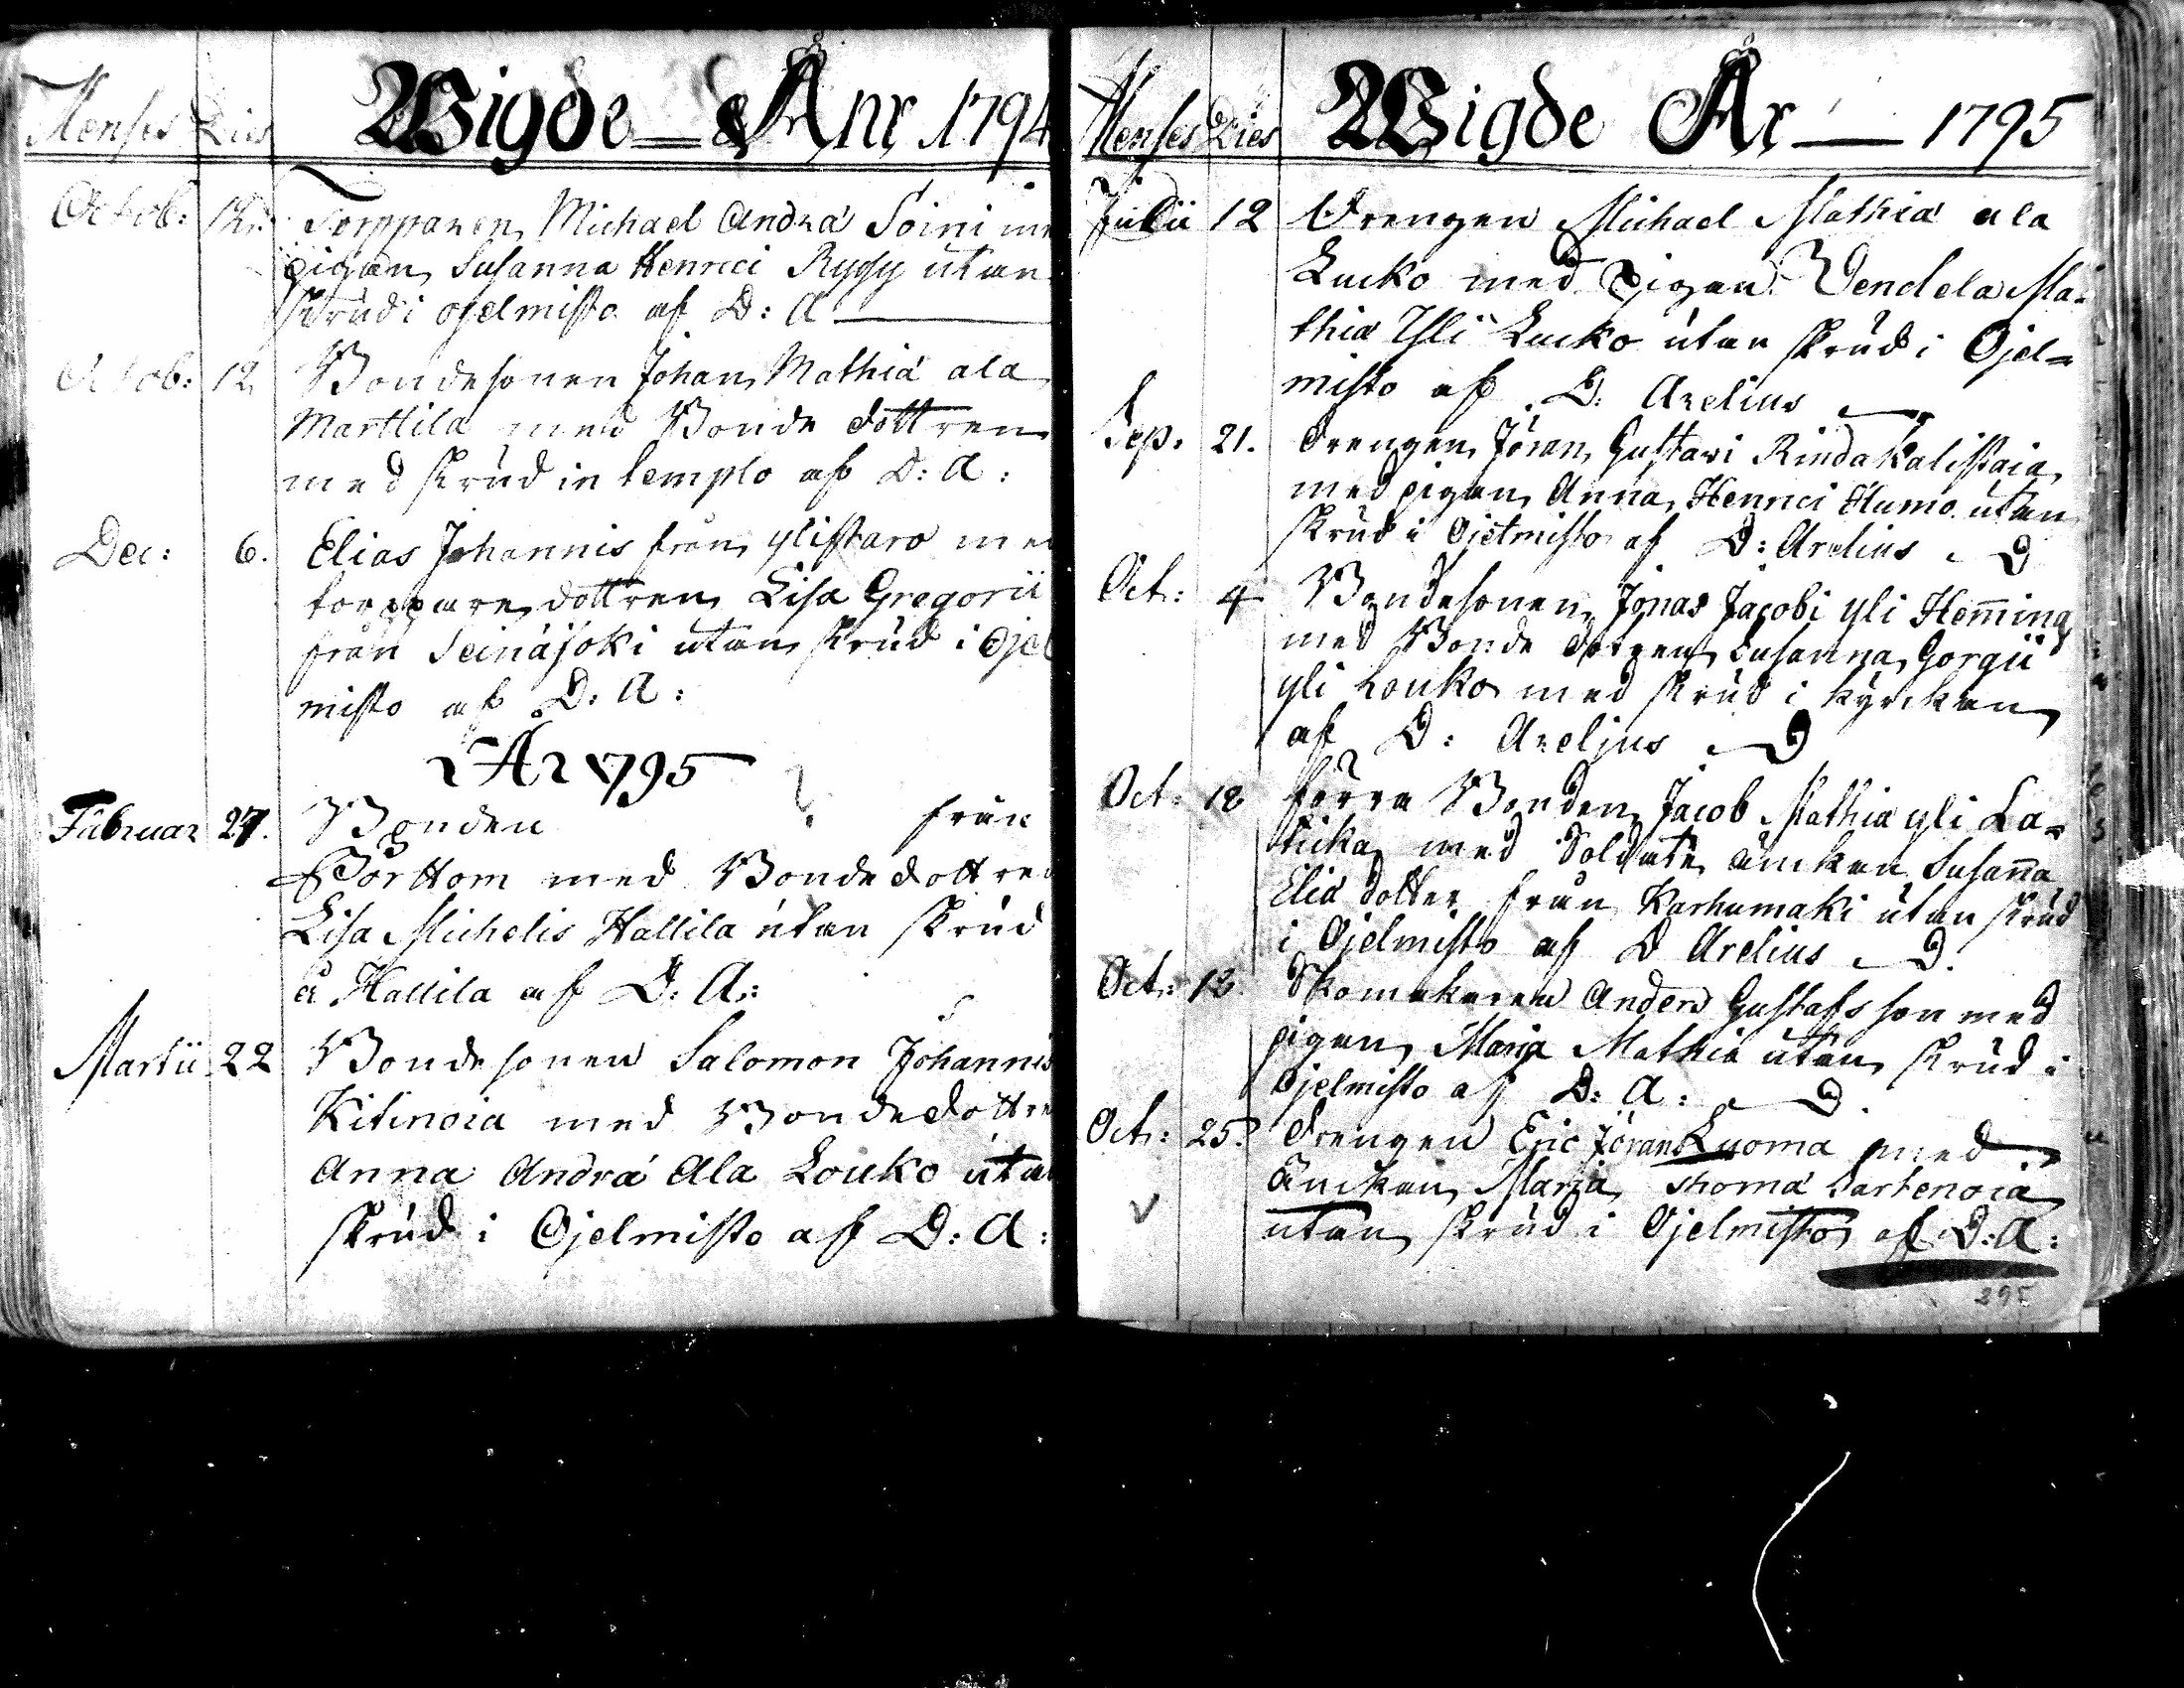 Menses Dies Wigde Åhr 1794
Octob: 12. Torpparen Michael Andræ Soini me
pigan Susanna Henrici Rygy utan
skrud i Ojelmisto af D: A
Octob: 12 Bondesonen Johan Mathiæ ala
Marttila med Bonde dottren
med skrud in templo af D: A:
Dec: 6. Elias Johannis från ylistaro me
torppare dottren Lisa Gregorii
från Seinäjoki utan skrud i Ojel
misto af D: A:
År 1795
Februar 27. Bonden från
Pörttom med Bonde dottren
Lisa Michelis Hallila utan skrud
å Hallila af D: A:
Martii 22 Bondesonen Salomon Johannis
Kitinoia med Bondedottre
Anna Andræ Ala Louko utan
skrud i Ojelmisto af D: A:
Menses Dies Wigde År 1795
Julii 12 Drengen Michael Mathiæ ala
Lucko med Pigan Vendela Ma-
thiæ Yli Lucko utan skrud i Ojel-
misto af D: Arelius
Sep: 21. Drengen Jöran Gustavi Rindakalistaia
med pigan Anna Henrici Humo utan
skrud i Ojelmisto af D: Arelius
Oct: 4 Bondesonen Jonas Jacobi yli Heming
med Bonde dotren Susanna Gorgii
yli Louko med skrud i kyrckan
af D: Areljus
Oct: 12 förra Bonden Jacob Mathiæ yli La-
ticka med Soldate änckan Susanna
Eliæ dotter från Karhumaki utan skrud
i Ojelmisto af D Arelius
Oct: 12. Skomakaren Anders Gustafsson med
pigan Maria Mathiæ utan skrud i
Ojelmisto af D: A:
Oct: 25. Drengen Eric Jöran Luoma med
änckan Marja Thomæ Sartenoia
utan skrud i Ojelmisto af D: A:
295